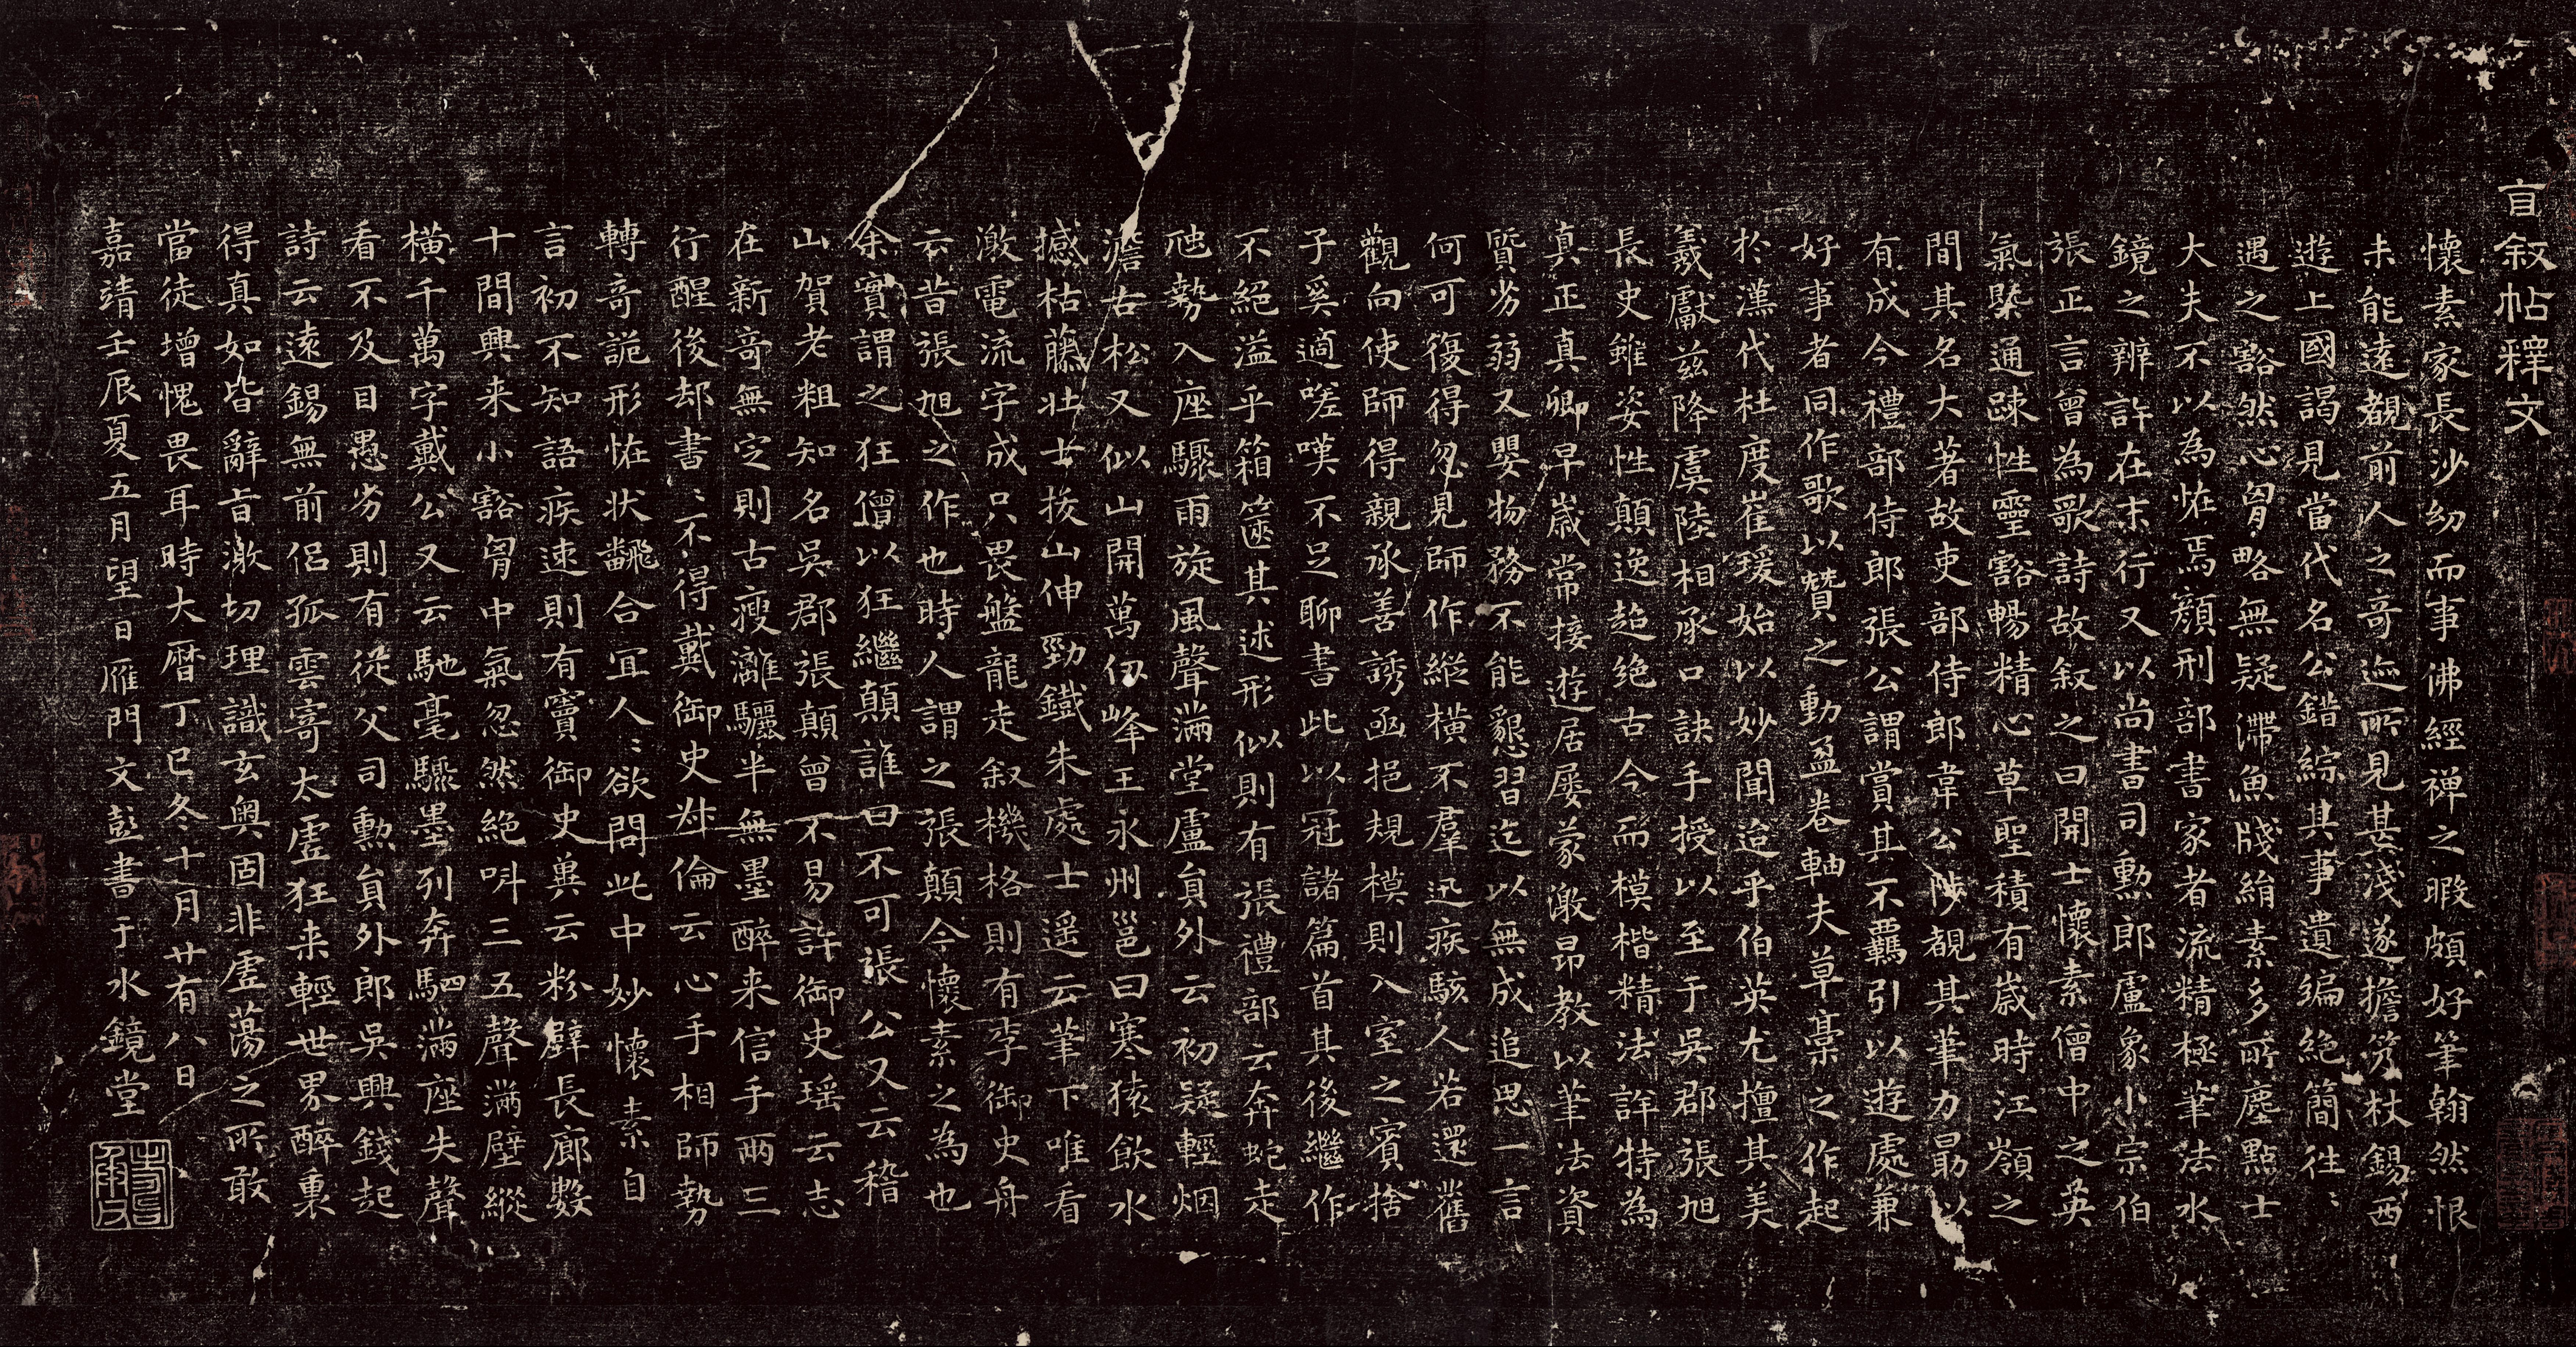 自叙帖釋文
懷素家長沙幼而事佛經禅之暇頗好筆翰然恨
未能遠覩前人之奇迹所見甚淺遂擔笈杖錫西
遊上國謁見當代名公錯綜其事遺編絶簡往〻
遇之豁然心胷略無疑滯魚牋絹素多所塵點士
大夫不以為恠焉顔刑部書家者流精極筆法水
鏡之辨許在末行又以尚書司勲郎盧象小宗伯
張正言曾為歌詩故叙之曰開士懷素僧中之英
氣槩通疎性靈豁暢精心草聖積有歳時江嶺之
間其名大著故吏部侍郎韋公陟覩其筆力朂以
有成今禮部侍郎張公謂賞其不羈引以遊處兼
好事者同作歌以贊之動盈卷軸夫草藁之作起
於漢代杜度崔瑗始以妙聞迨乎伯英尤擅其美
羲獻兹降虞陸相承口訣手授以至于吳郡張旭
長史雖姿性顛逸超绝古今而模楷精法詳特為
真正真卿早歳常接遊居屡蒙激昂教以筆法資
質劣弱又嬰物務不能懇習迄以無成追思一言
何可復得忽見師作縱横不羣迅疾駭人若還舊
觀向使師得親承善誘函挹規模則入室之賓捨
子奚適嗟嘆不足聊書此以冠諸篇首其後繼作
不絕溢乎箱篋其述形似則有張禮部云奔蛇走
虺勢入座驟雨旋風聲滿堂盧貟外云初疑輕烟
澹古松又似山開萬仞峰王永州邕曰寒猿飲水
撼枯藤壮士拔山伸勁鐵朱處士遥云筆下唯看
激電流字成只畏盤龍走叙機格則有李御史舟
云昔張旭之作也時人謂之張顛今懷素之為也
余實謂之狂僧以狂繼顛誰曰不可張公又云稽
山賀老粗知名吳郡張顛曾不易許御史瑶云志
在新奇無定則古瘦灕驪半無墨醉来信手兩三
行醒後却書〻不得戴御史叔倫云心手相師勢
轉奇詭形恠状飜合冝人〻欲問此中妙懷素自
言初不知語疾速則有竇御史兾云粉壁長廊數
十間興来小豁胷中氣忽然絶呌三五聲滿壁縱
横千萬字戴公又云馳毫驟墨列奔駟滿座失聲
看不及目愚劣則有從父司勳貟外郎吳興錢起
詩云遠錫無前侣孤雲寄太虚狂来輕世界醉裏
得真如皆辭㫖激切理識玄奥固非虚蕩之所敢
當徒增愧畏耳時大暦丁巳冬十月廿有八日
嘉靖壬辰夏五月望日雁門文彭書于水鏡堂